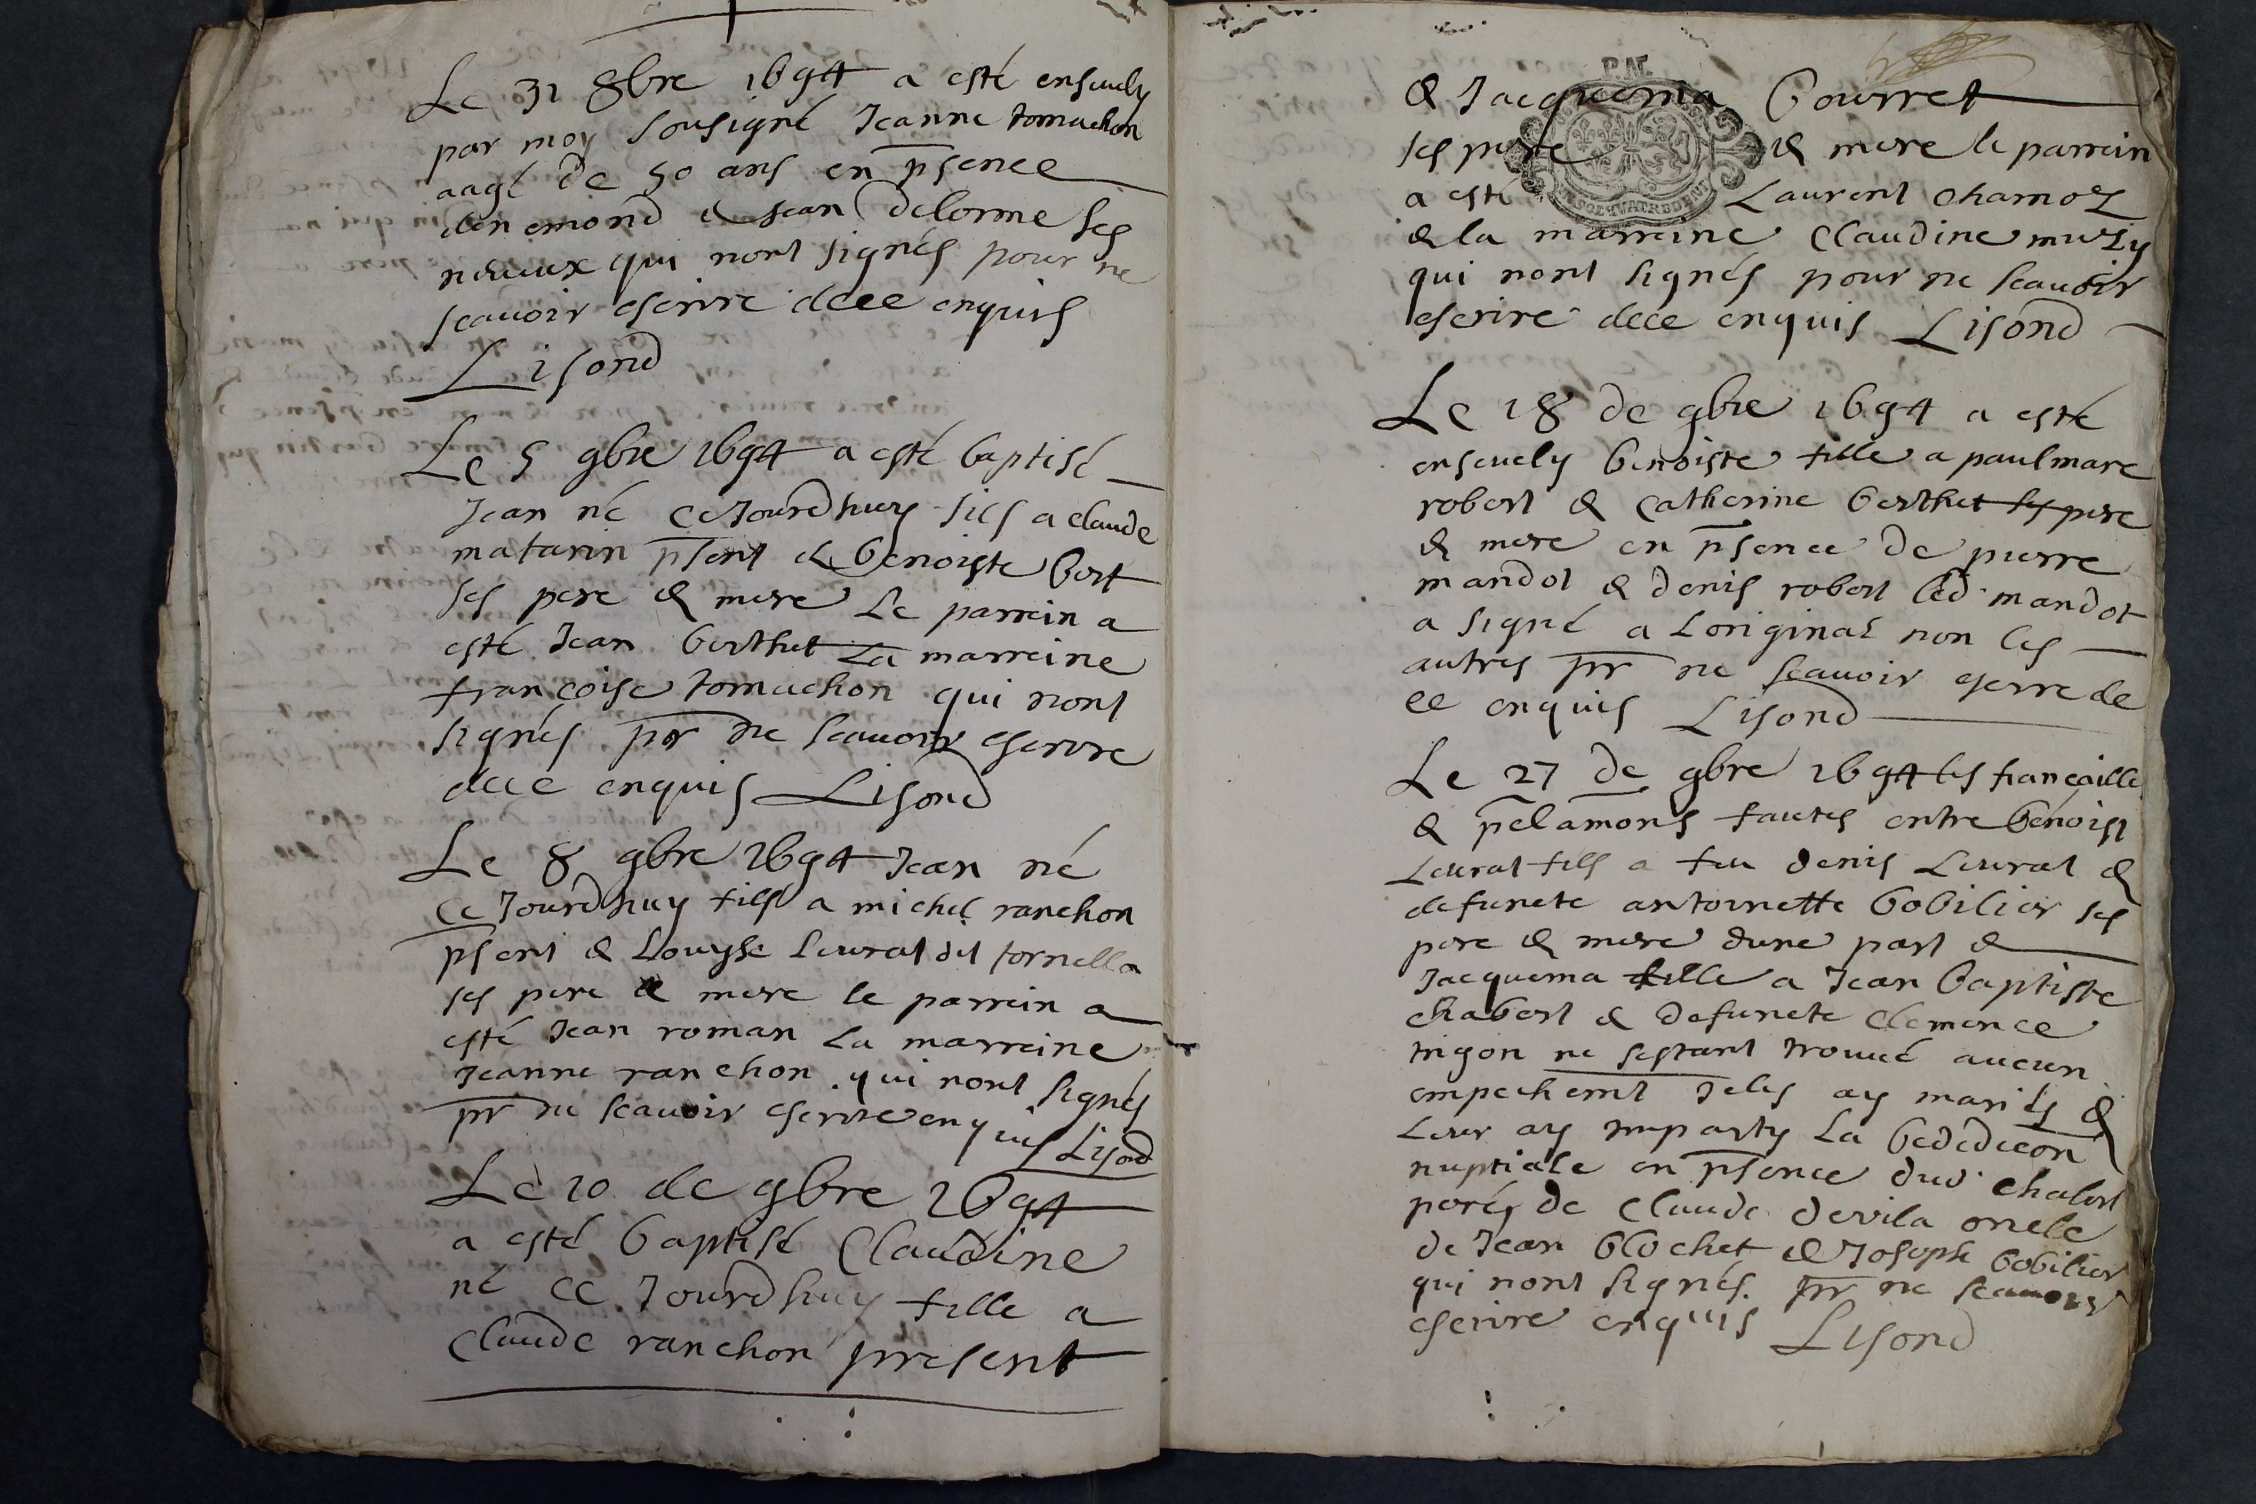 Le 31 8bre 1694 a esté ensevely
par moy sousigné Jeanne tomachon
aagé de 50 ans en psence
den emond & Jean delorme ses
neveux qui nont signés pour ne
scavoir escrire dece enquis
Lisond
Le 5 9bre 1694 a esté baptisé
Jean né ce Jourdhuy fils a claude
matarin psent & benoiste bert
ses pere & mere Le parrein a
esté Jean berthet La marreine
francoise tomachon qui nont
signés pr ne scavoir escrire
dece enquis Lisond
Le 8 9bre 1694 Jean né
ce Jourdhuy fils a michel ranchon
psent & Louyse Leurat dit tornella
ses pere & mere le parrein a
esté Jean roman La marreine
Jeanne ranchon qui nont signés
pr ne scavoir escrire enquis Lisond
Le 10 de 9bre 1694
a esté baptisé Claudine
né ce Jourdhuy fille a
Claude ranchon present
P.M.
& Jacquema bourret
ses pere & mere le parrein
a esté Laurent Chamoz
& la marreine Claudine muzy
qui nont signés pour ne scavoir
escrire dece enquis Lisond
Le 18 de 9bre 1694 a esté
ensevely benoiste fille a paul marc
robert & catherine berthet ses pere
& mere en psence de pierre
mandot & denis robert led mandot
a signé a Loriginal non les
autres pr ne scavoir escrre de
ce enquis Lisond
Le 27 de 9bre 1694 les fiancaille
& pclamons faites entre benoist
Leurat fils a feu denis Leurat &
defuncte antoinette bobilier ses
pere & mere dune part &
Jacquema fille a Jean baptiste
chabert & defuncte Clemence
trigon ne sestant trouvé aucun
empechemt Jeles ay mariés &
Leur ay imparty La bededicon
nuptiale en psence dud chabert
pere, de Claude devila oncle
de Jean blochet & Joseph bobilier
qui nont signés pr ne scavoir
escrire enquis Lisond